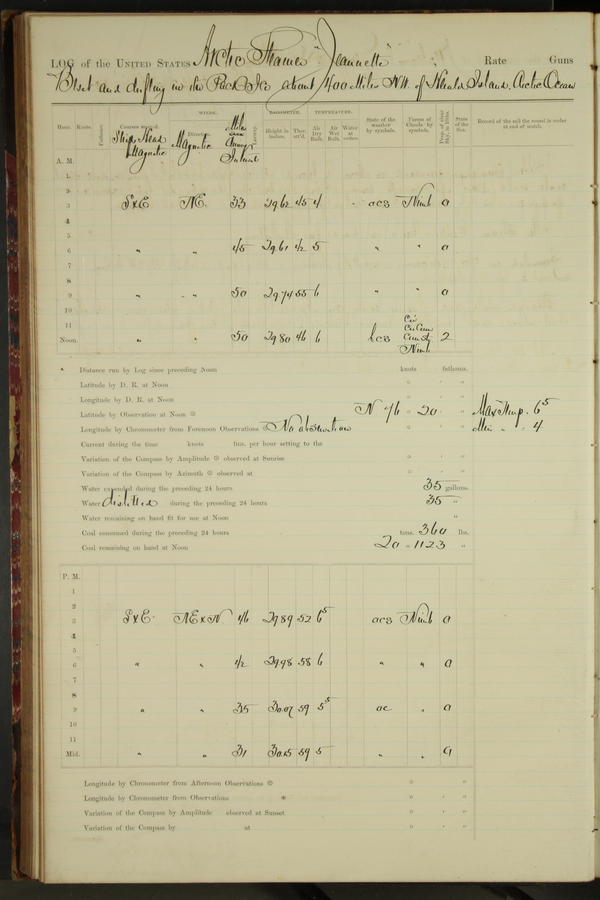 LOG of the UNITED STATES Arctic Steamer "Jeannette" Rate Guns
Beset and drifting in the Pack Ice about 400 Miles NW. of Herald Island, Arctic Ocean
WINDS. BAROMETER. TEMPERATURE.
Hour. Knots. Fathoms. Courses steered. Direction. Leeway. Height in inches. Ther. att'd. Air Dry Bulb. Air Wet Bulb. Water at surface. State of the weather by symbols. Forms of Clouds by symbols. Prop. of clear sky, in 10ths. State of the Sea. Record of the sail the vessel is under at end of watch.
Ship's Head Magnetic Magnetic
A. M.
1
2
3 S x E NE. 33 29.62 45 4 ocs Nimb 0
4
5
6 " " 45 29.61 42 5 " " 0
7
8
9 " " 50 29.74 55 6 " " 0
10
11
Noon. " " 50 29.80 46 6 bcs Cir Cir Cum Cum St Nimb 2
Distance run by Log since preceding Noon knots fathoms.
Latitude by D. R. at Noon ° ' "
Longitude by D. R. at Noon ° ' "
Latitude by Observation at Noon N 76 ° 20 ' " Max Temp. 6⁵
Longitude by Chronometer from Forenoon Observations No observation ° ' " Min " " 4
Current during the time knots fms. per hour setting to the
Variation of the Compass by Amplitude observed at Sunrise ° ' "
Variation of the Compass by Azimuth observed at ° ' "
Water expended during the preceding 24 hours 35 gallons.
Water distilled during the preceding 24 hours 35 "
Water remaining on hand fit for use at Noon "
Coal consumed during the preceding 24 hours tons. 360 lbs.
Coal remaining on hand at Noon 20 " 1123 "
P. M.
1
2
3 S x E. NE x N 46 29.89 52 6⁵ ocs Nimb 0
4
5
6 " " 42 29.98 58 6 " " 0
7
8
9 " " 35 30.07 59 5⁵ oc " 0
10
11
Mid. " " 31 30.15 59 5 " "
Longitude by Chronometer from Afternoon Observations ° ' "
Longitude by Chronometer from Observations * ° ' "
Variation of the Compass by Amplitude observed at Sunset ° ' "
Variation of the Compass by at ° ' "